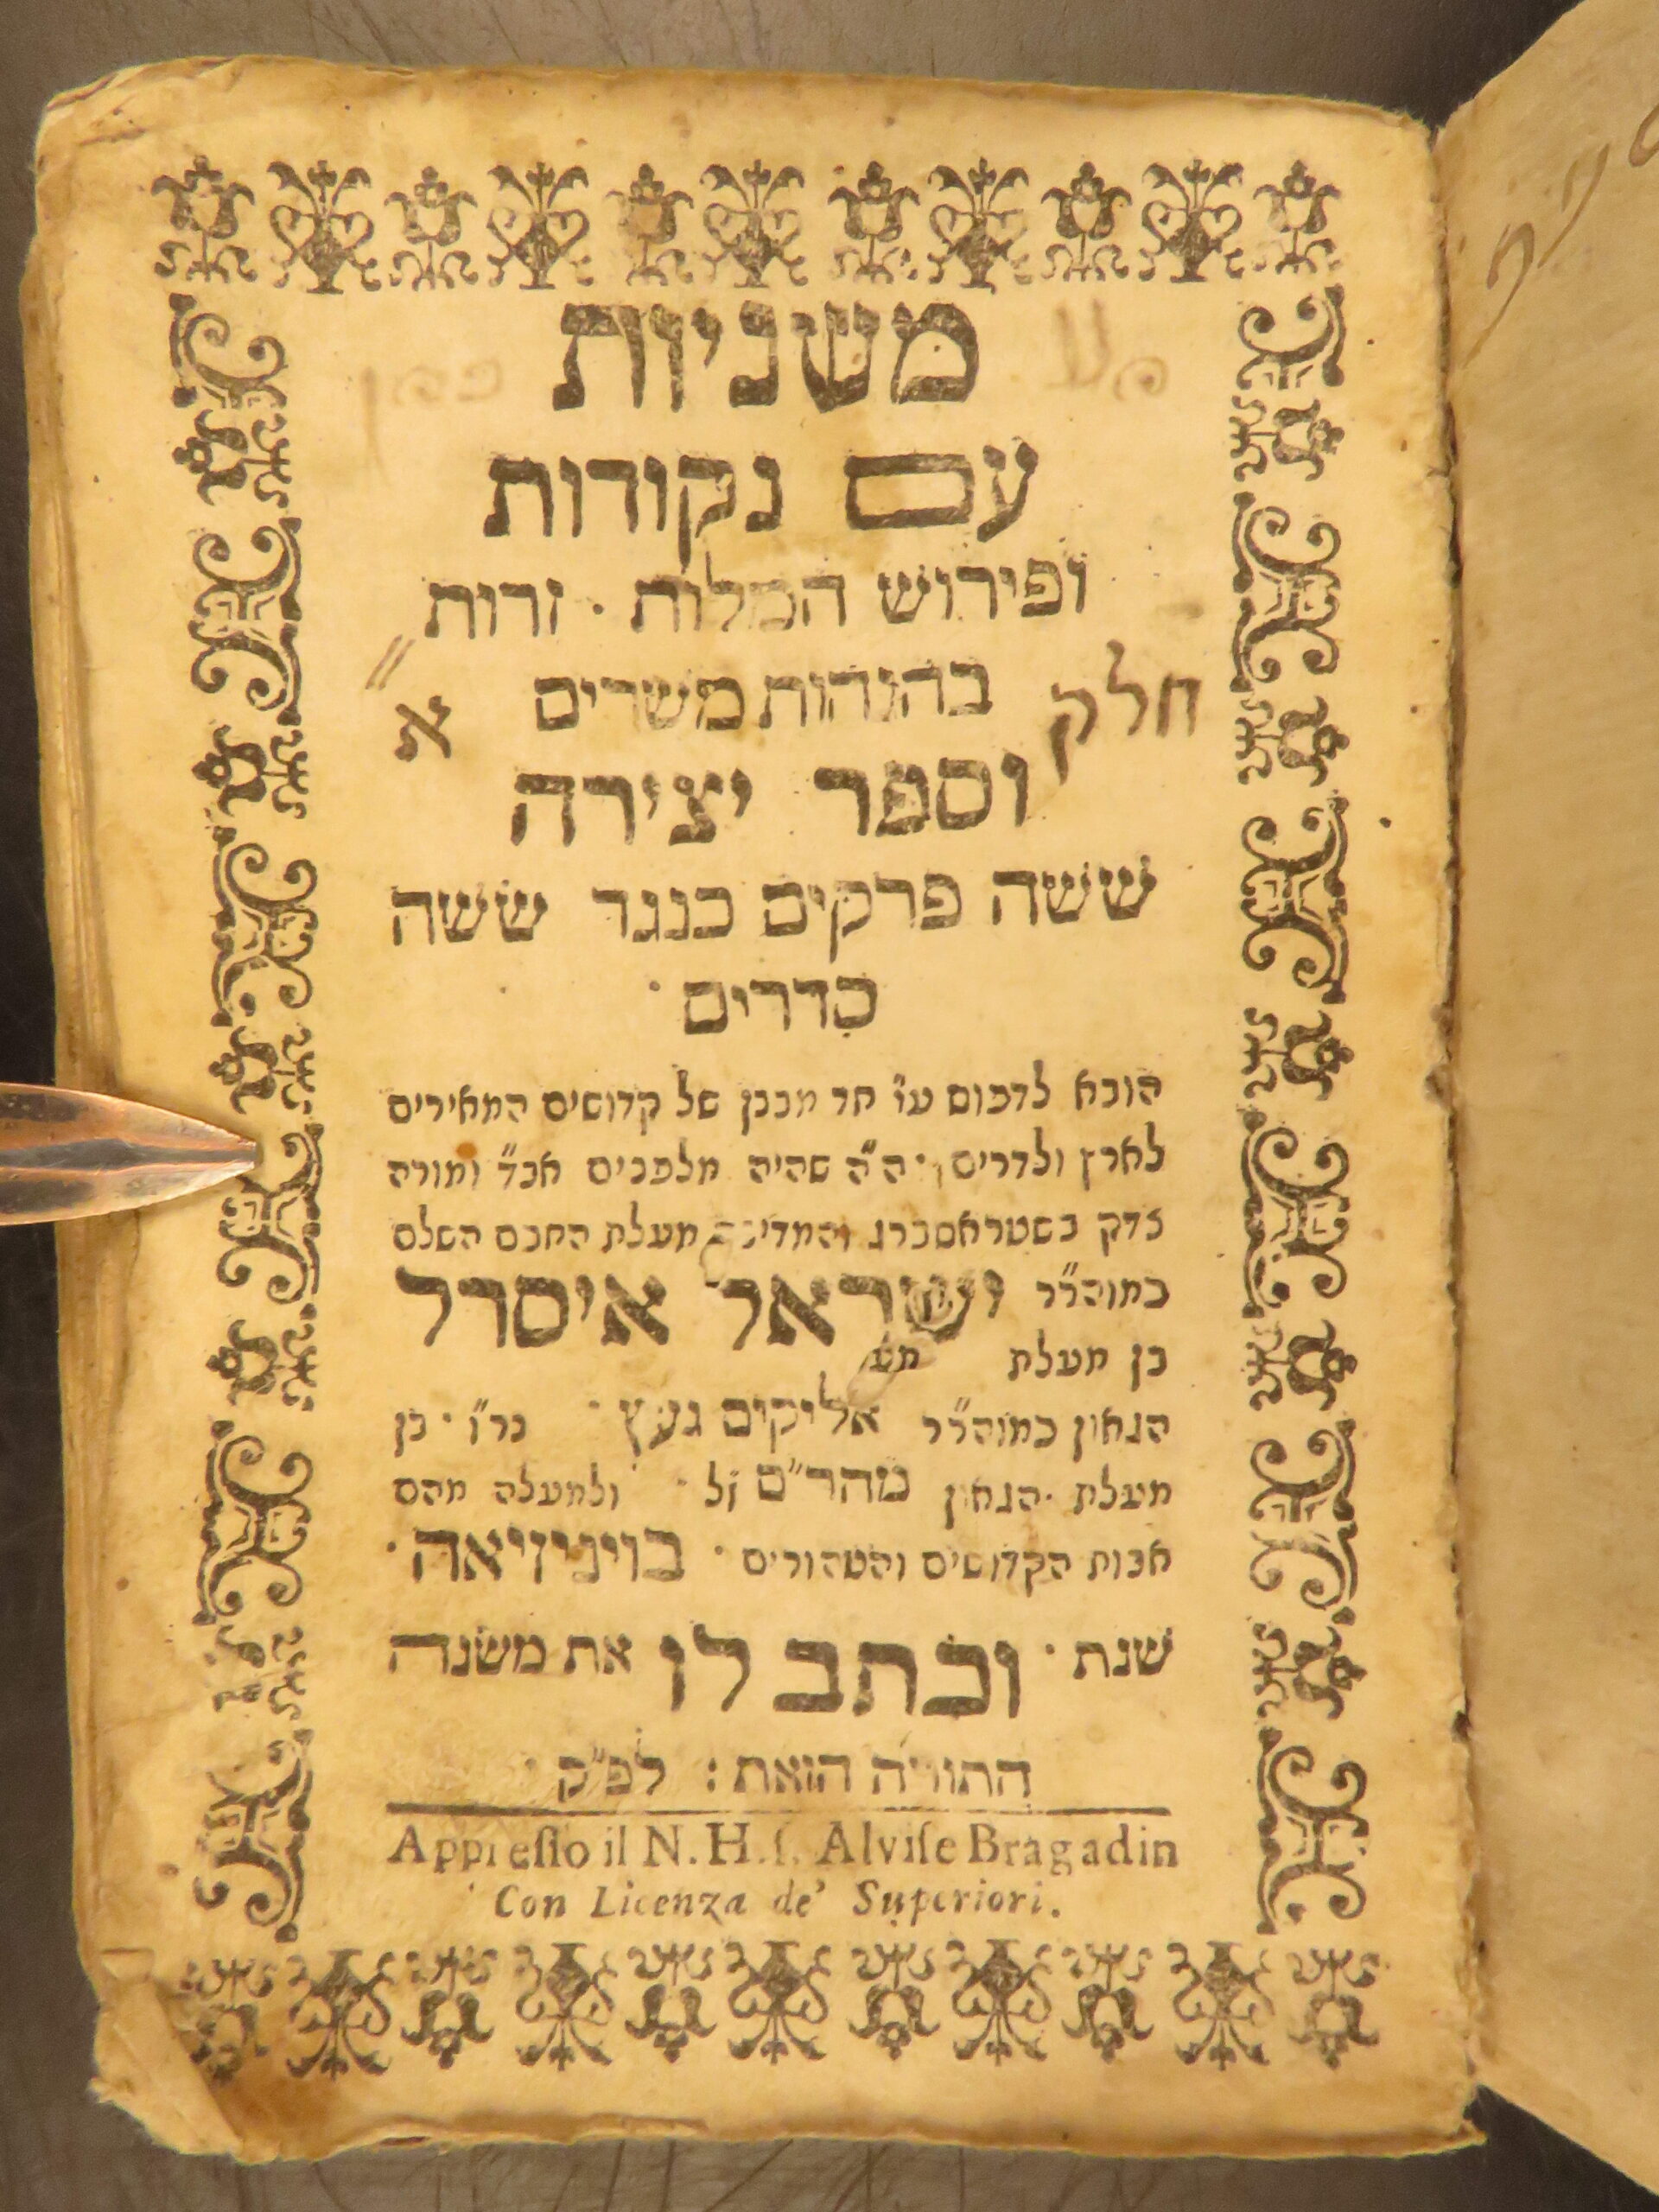 משניות
עם נקודות
ופירוש המלות · זרות
בהגהות משרים
חלק א
וספר יצירה
ששה פרקים כנגד ששה
סדרים ·
הובא לדפוס ע״י חד מבנן של קדושים המאירים
לארץ ולדרים · ה״ה שהיה מלפנים אב״ד ומורה
צדק בשטראסבורג והמדינה מעלת החכם השלם
כמוהר״ר ישראל איסרל
בן מעלת
הגאון כמוהר״ר אליקים געץ נר״ו · בן
מעלת הגאון מהר״ם ז״ל · ולמעלה מהם
אבות הקדושים והטהורים · בויניזיאה ·
שנת · וכתב לו את משנה
התורה הזאת : לפ״ק
Appresso il N. H. ſ. Alviſe Bragadin
Con Licenza de' Superiori.